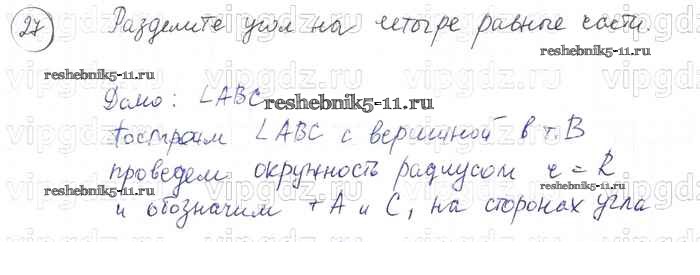 27 Разделите угол на четыре равные части.
reshebnik5-11.ru
reshebnik5-11.ru
Дано: ∠ABC
reshebnik5-11.ru
Построим ∠ABC с вершиной в т. B
проведем окружность радиусом r = R
reshebnik5-11.ru
reshebnik5-11.ru
и обозначим т A и C, на сторонах угла
vipgdz.ru